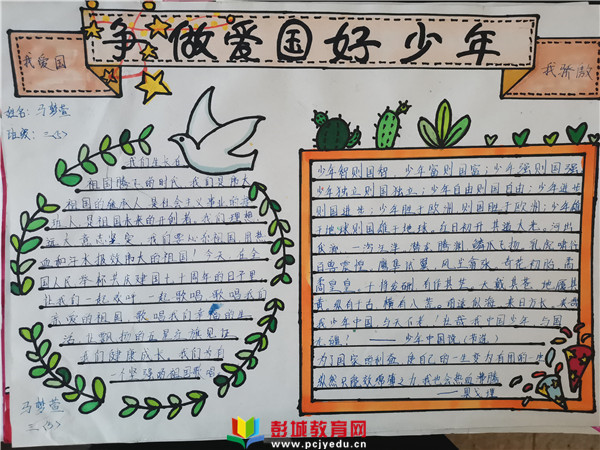 争做爱国好少年
我爱国
我骄傲
姓名：马梦萱
班级：三(5)
我们生长在
祖国腾飞的时代，我们是伟大
祖国的继承人，是社会主义事业的
人，是祖国未来的开创者，我们理想
远大，意志坚实，我们要从爷祖国，用热
血和汗水报效伟大的祖国！今天，在全
国人民举标共庆建国七十周年的日子里
让我们一起欢呼，一起歌唱，歌唱我们
亲爱的祖国，歌唱我们幸福的生
活，让飘扬的五星红旗见证
我们健康成长，我们为有
一个坚强的祖国歌唱
马梦萱
三(5)
少年智则国智，少年富则国富；少年强则国强
少年独立则国独立；少年自由则国自由；少年进步
则国进步；少年胜于欧洲则国胜于欧洲；少年雄
于地球则国雄于地球。红日初升，其道大光。河出
伏流，一泻汪洋。潜龙腾渊，鳞爪飞扬。乳虎啸谷
百兽震惶。鹰隼试翼，风尘翕张。奇花初胎，矞
矞皇皇。干将发硎，有作其芒。天戴其苍，地履其
黄。纵有千古，横有八荒。前途似海，来日方长。美哉
我少年中国，与天不老！壮哉我中国少年，与国
无疆！——少年中国说（节选）
为了国家的利益，使自己的一生变为有用的一生
纵然只能效绵薄之力，我也会热血沸腾
——果戈理
彭城教育网
www.pcjyedu.cn